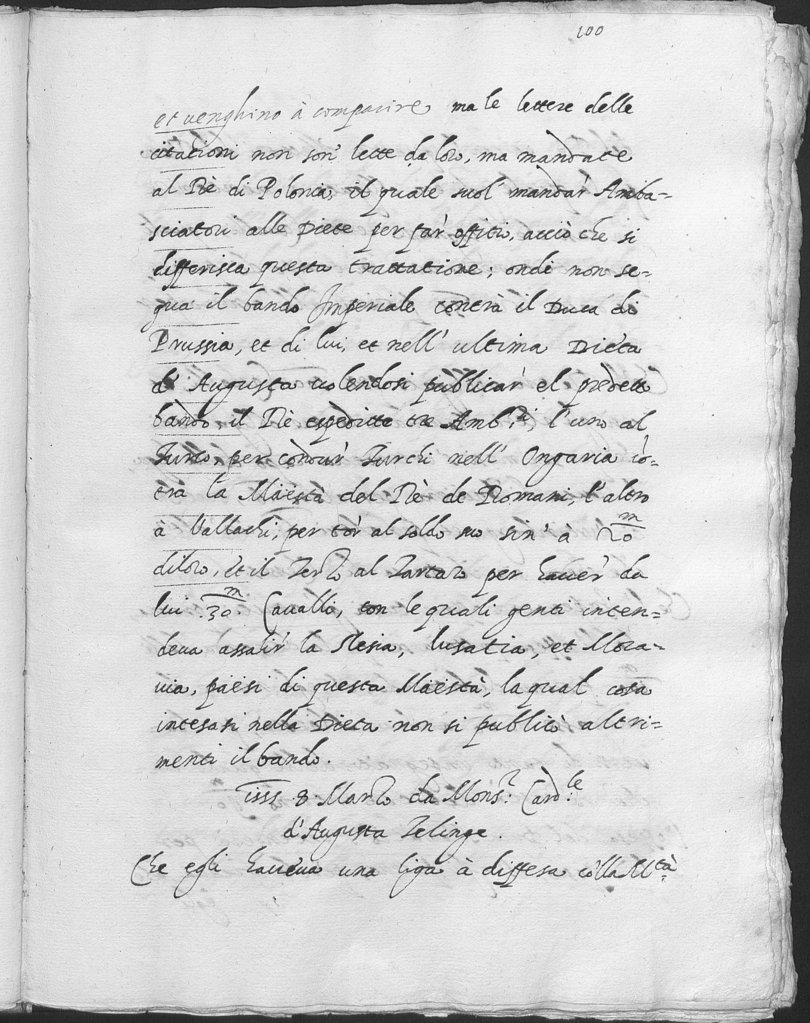 100
et venghino à comparire, ma le lettere delle
citationi non son' lette da loro, ma mandate
al Rè di Polonia, il quale suol' mandar' Amba-
sciatori alle Diete per far' offitio, acciò che si
differisca questa trattatione; onde non se-
gua il bando Imperiale contra il Duca di
Prussia, et di lui, et nell' ultima Dieta
d' Augusta volendosi publicar' el predett
bando, il Rè espeditte tre Amb.ri, l'uno al
Turco, per condur' Turchi nell' Ongaria cō-
tra la Maestà del Rè de Romani, l'altro
à Vallachi, per tor' al soldo suo sin' à 20 m
di loro, et il Terzo al Tartaro per haver' da
lui 30 m Cavalli, con le quali genti inten-
deva assalir' la Slesia, Lusatia, et Mora-
via, paesi di questa Maestà, la qual cosa
intesasi nella Dieta non si publicò altri-
menti il bando.
1555 8 Marzo da Mons.r Card.le
d'Augusta Telinge.
Che egli haveva una liga à diffesa cō la M.tà